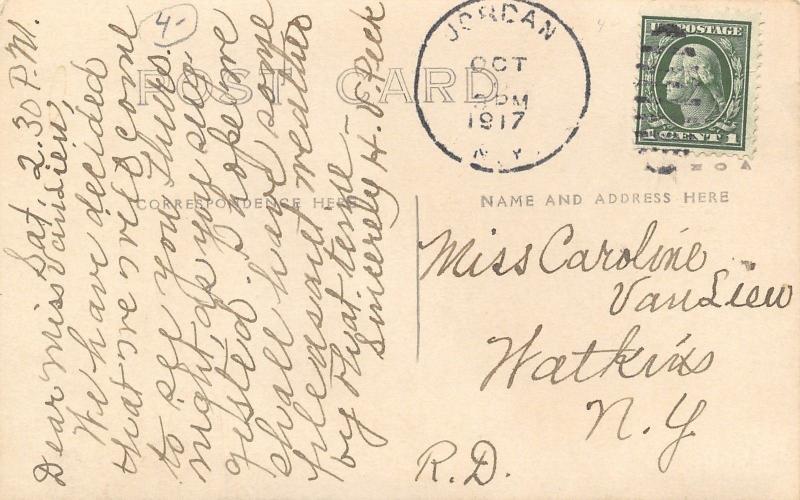 4-
POST CARD
JORDAN
OCT
PM
1917
N.Y.
U.S. POSTAGE
1 CENT 1
CORRESPONDENCE HERE
NAME AND ADDRESS HERE
Sat. 2.30 P.M.
Dear Miss VanLieu,
We have decided
that we will come
to see you Thurs.
night, as you sug-
gested. I hope we
shall have some
pleasant weather
by that time –
Sincerely H. V. Peck
Miss Caroline
VanLieu
Watkins
N.Y.
R.D.